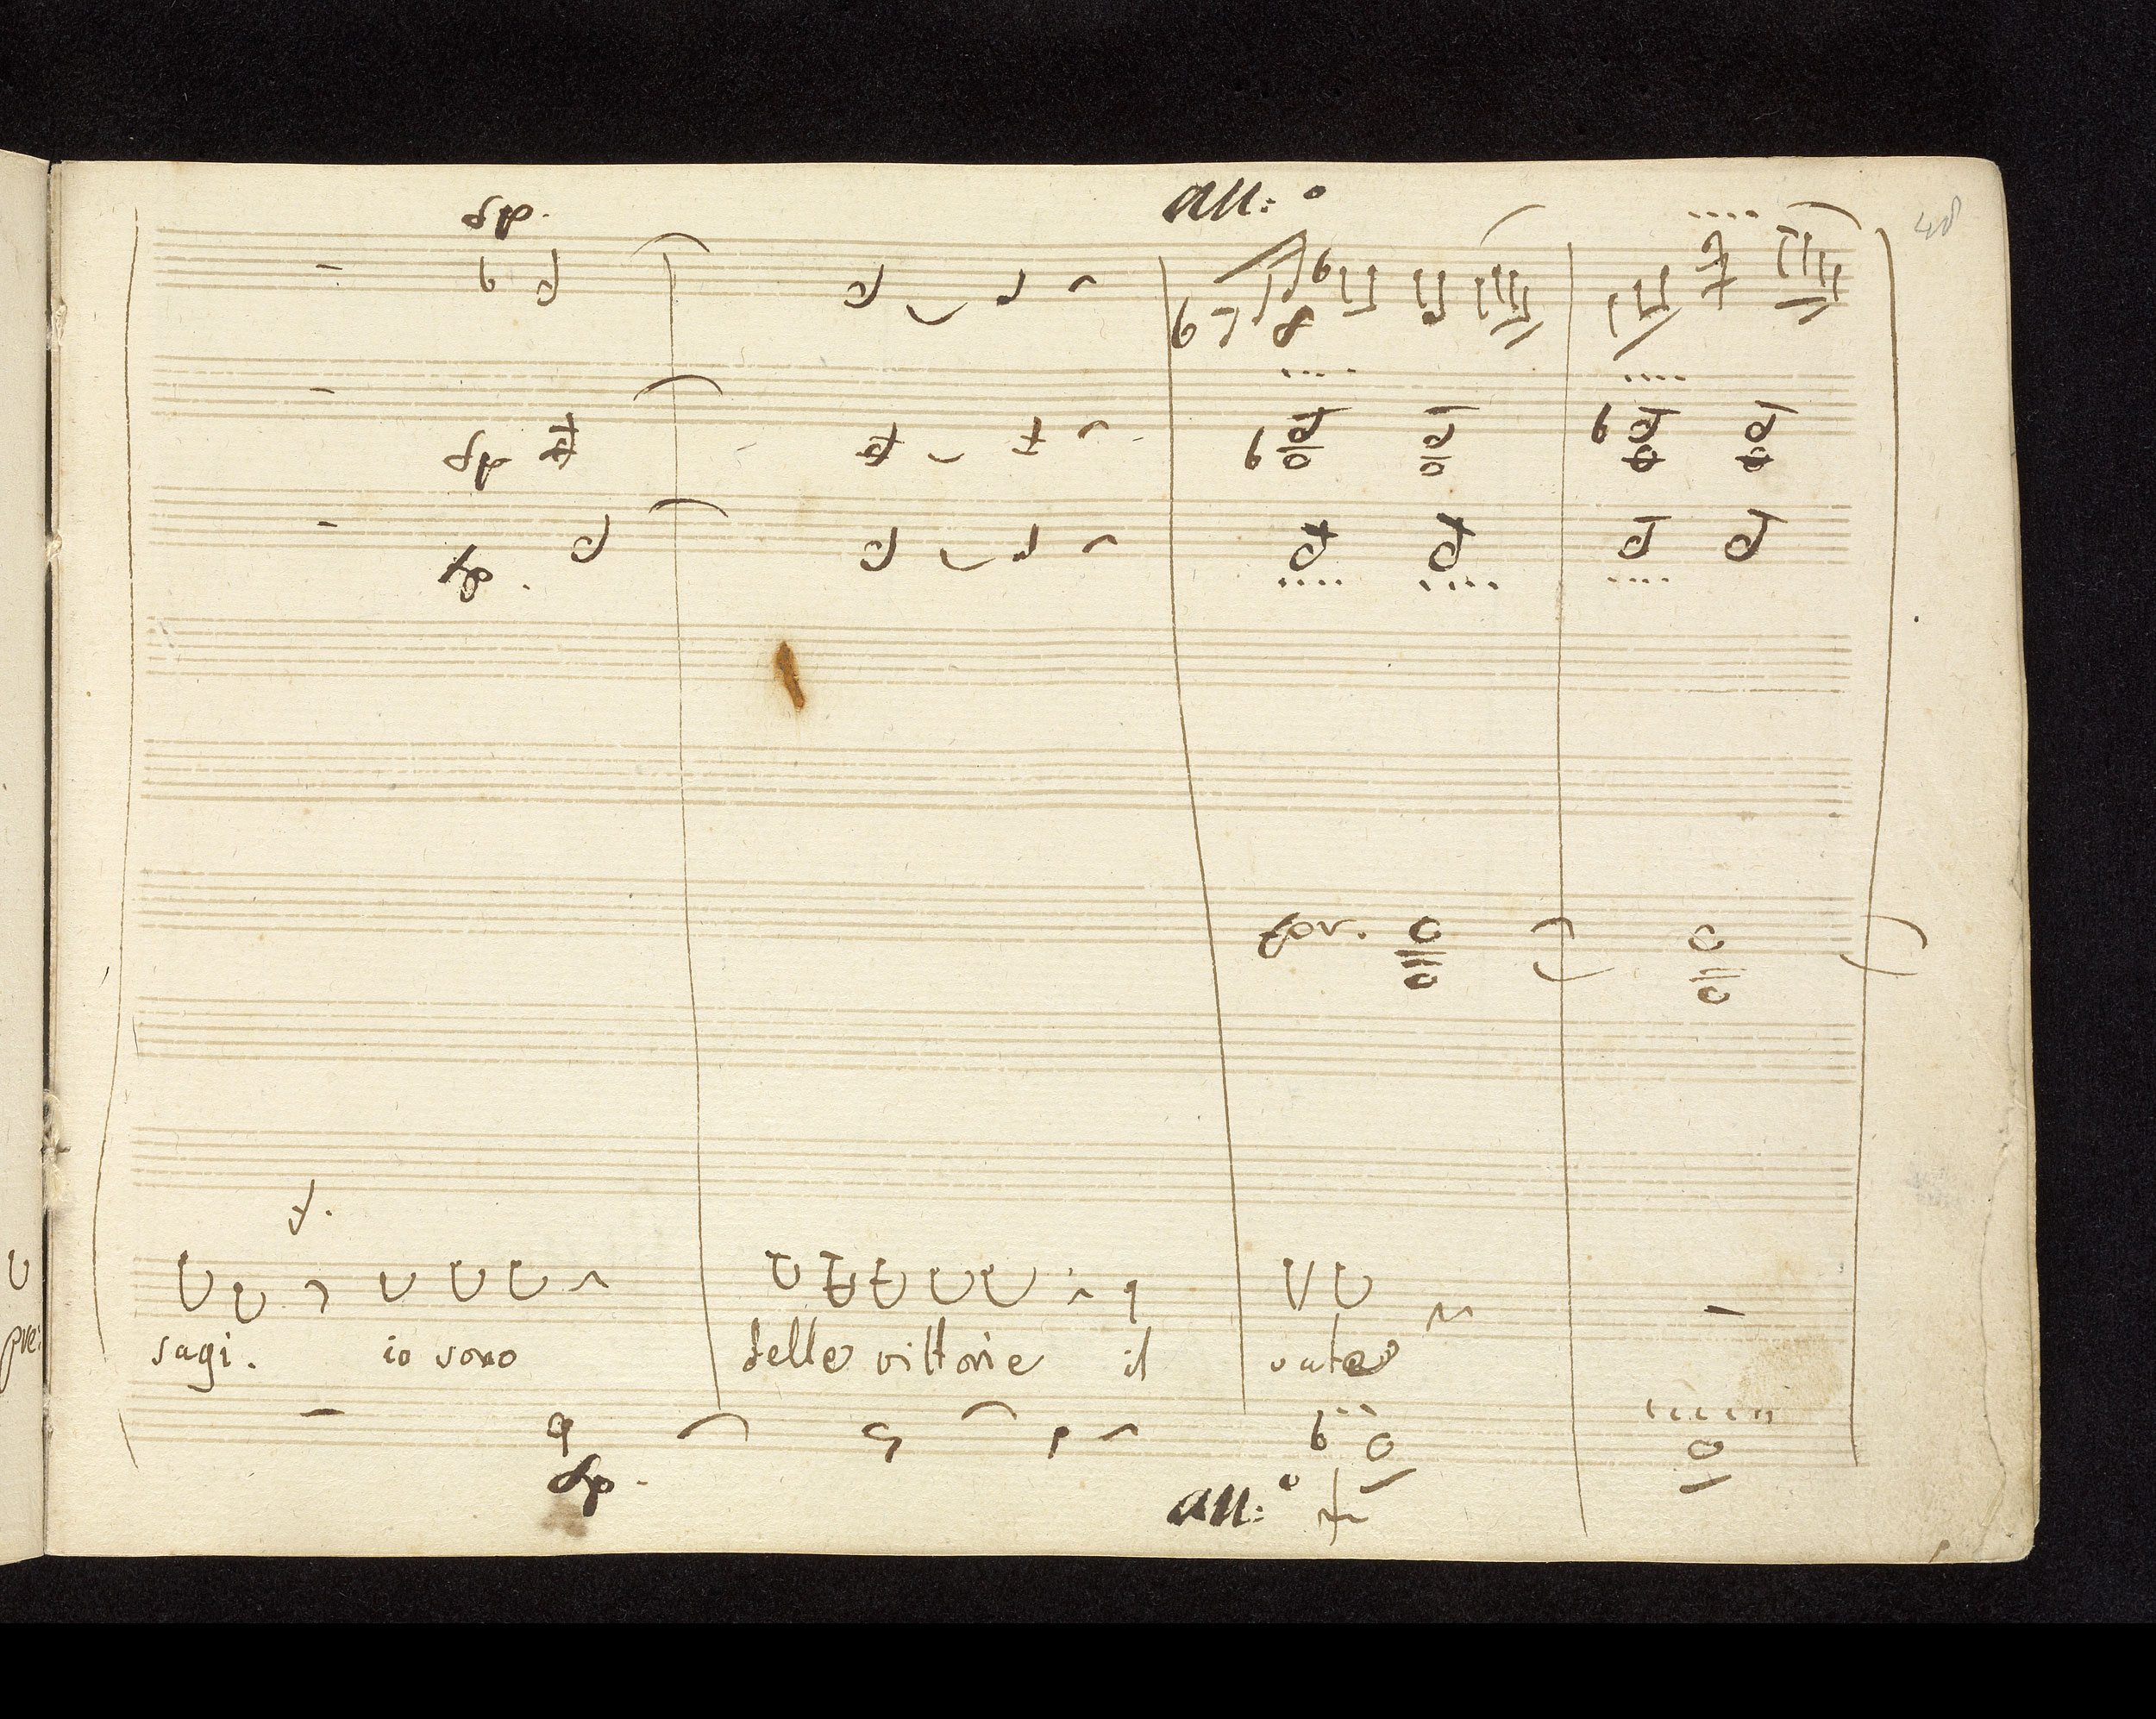 48
sp.
All:º
sp
sp.
for.
f.
pre:
sagi. io sono delle vittorie il vate
sp.
All:º f